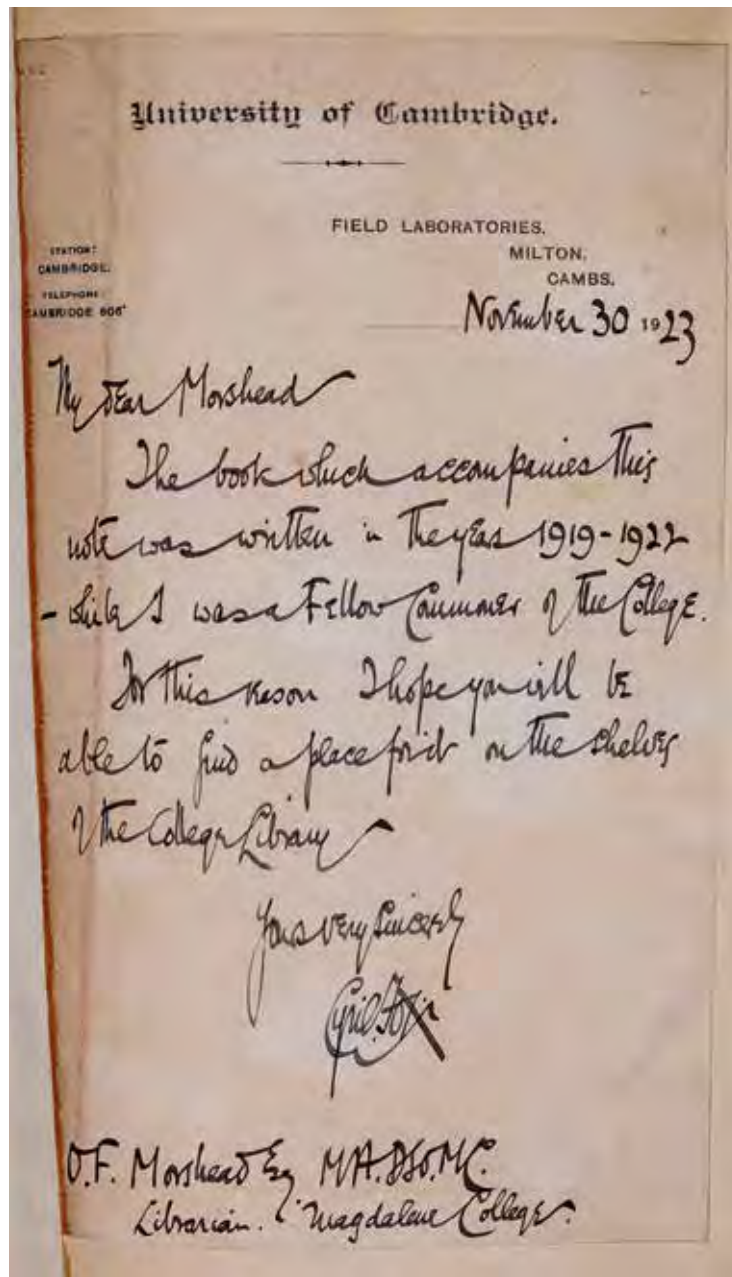 University of Cambridge.
FIELD LABORATORIES,
MILTON,
CAMBS.
STATION:
CAMBRIDGE.
TELEPHONE:
CAMBRIDGE 606
November 30 1923
My dear Morshead
The book which accompanies this
note was written in the years 1919-1922
- while I was a Fellow Commoner of the College.
For this reason I hope you will be
able to find a place for it on the shelves
of the College Library
Yours very sincerely
Cyril Fox
O.F. Morshead Esq M.A. DSO. MC.
Librarian. Magdalene College.